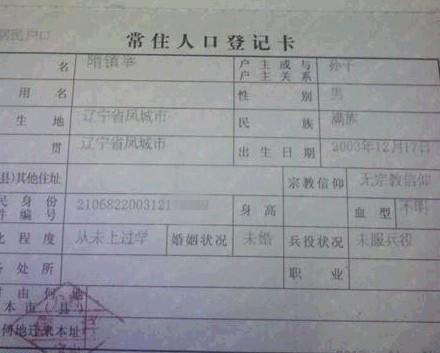 居民户口
常住人口登记卡
名 隋镇 户主或与户主关系 孙子
用名 性别 男
生地 辽宁省凤城市 民族 满族
贯 辽宁省凤城市 出生日期 2003年12月17日
县)其他住址 宗教信仰 无宗教信仰
民身份件编号 2106822003121 身高 血型 不明
化程度 从未上过学 婚姻状况 未婚 兵役状况 未服兵役
务处所 职业
时由何地
本市(县)
何地迁来本址